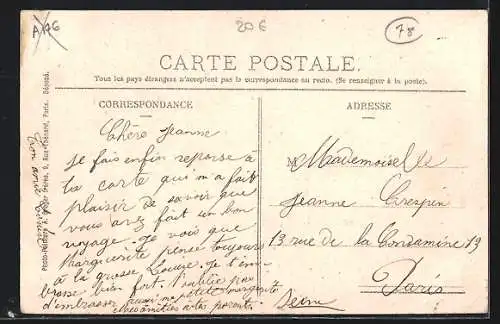 A 46
20 €
78
CARTE POSTALE
Tous les pays étrangers n'acceptent pas la correspondance au recto. (Se renseigner à la poste).
CORRESPONDANCE
ADRESSE
Chère Jeanne
je fais enfin reponse à
ta carte qui m'a fait
plaisir de savoir que
vous avez fait un bon
voyage. Je vois que
Marguerite pense toujours
à la grosse Louize. Je t'em
brasse bien fort. oublie pas
d'embrasser aussi ma petite Marguerite
mes amitiés a tes parents.
Ton amie
M Mademoiselle
Jeanne Crespin
13 rue de la Condamine 13
Paris
Seine
Rue Thénard, Paris. Déposé.